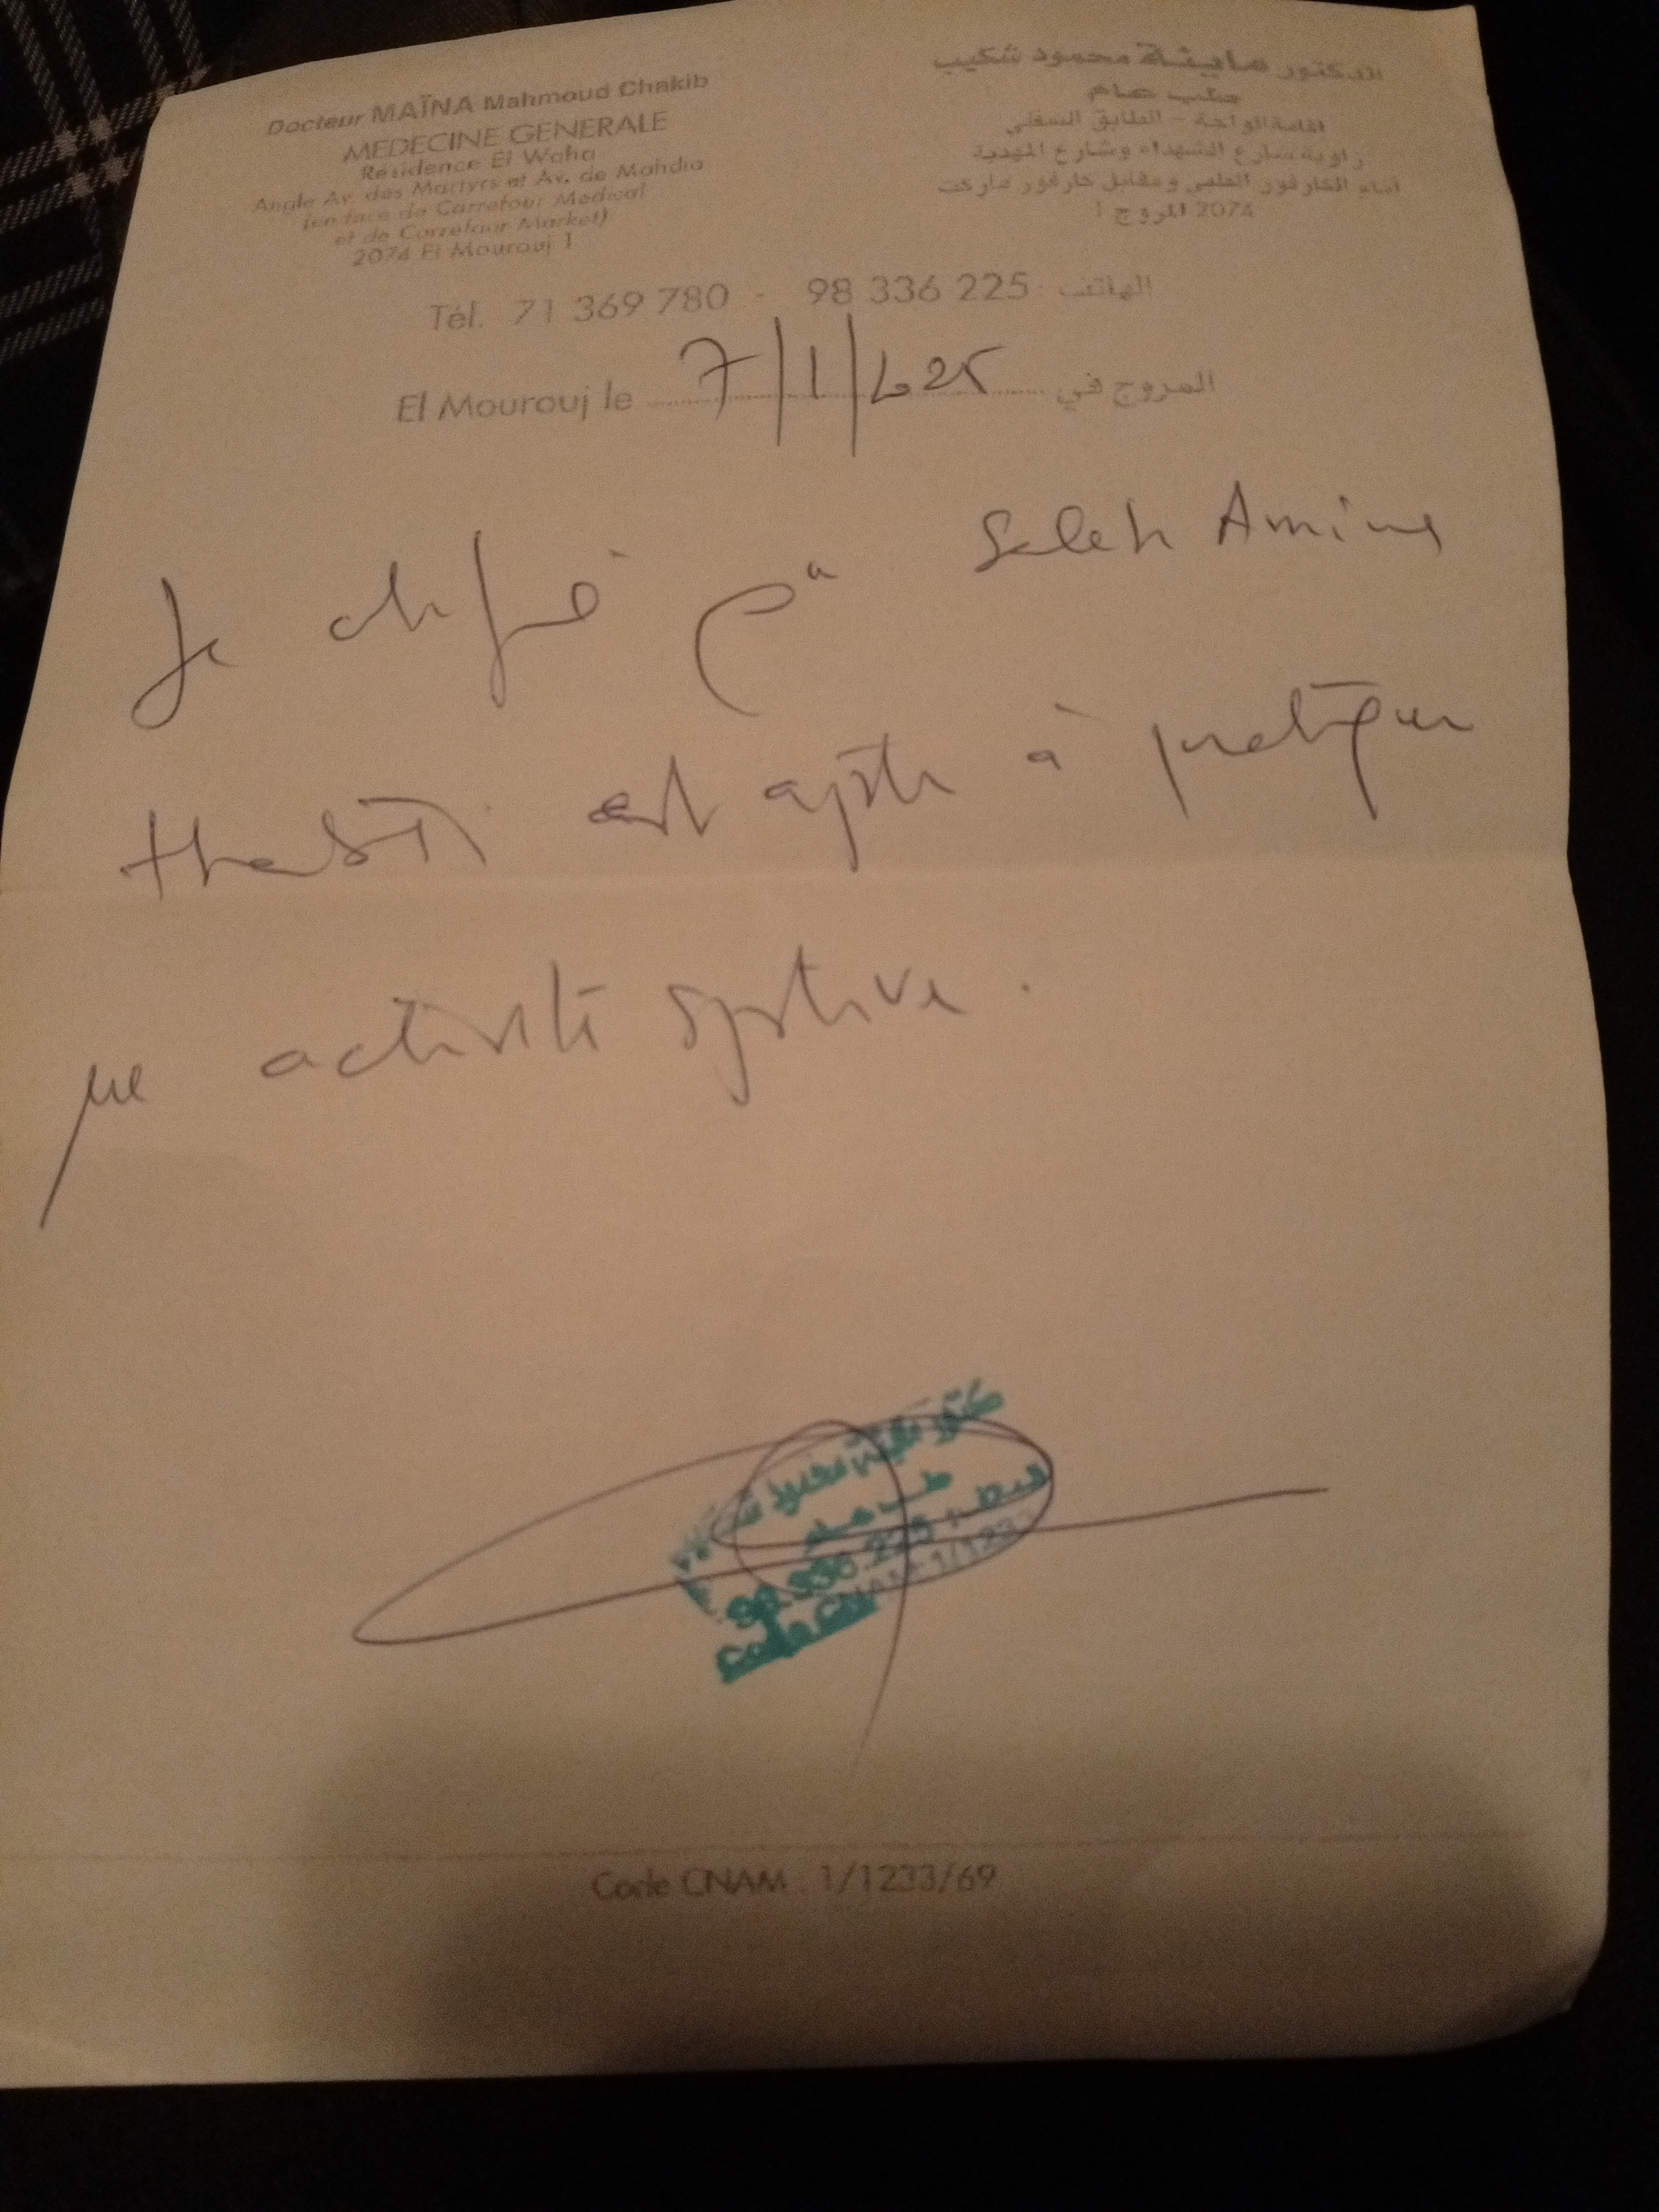 Docteur MAÏNA Mahmoud Chakib
MEDECINE GENERALE
Résidence El Waha
Angle Av. des Martyrs et Av. de Mahdia
(en face de Carrefour Medical
et de Carrefour Market)
2074 El Mourouj 1
الدكتور ماينة محمود شكيب
طب عام
اقامة الواحة - الطابق السفلي
زاوية شارع الشهداء وشارع المهدية
أمام الكارفور الطبي ومقابل كارفور ماركت
2074 المروج 1
Tél. 71 369 780 - 98 336 225 الهاتف
El Mourouj le 7/1/2025 المروج في
Je certifie que Saleh Amine
est apte à pratiquer
une activité sportive.
طب عام
98.336.225
Code CNAM: 1/1233
Code CNAM : 1/1233/69